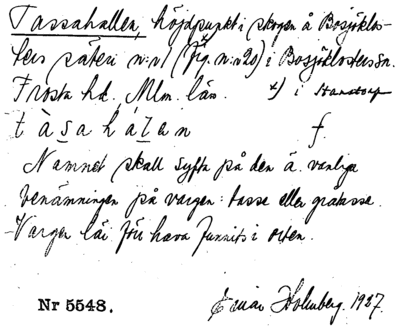 Tassahallen, höjdpunkt i skogen å Bosjöklos-
ters säteri n:r 1 (fig. n:o 20) i Bosjöklosters sn.
Frosta hd. Mlm. län x) i Stanstorp
tàsahálan f.
Namnet skall syfta på den ä. vanliga
benämningen på vargen: tasse eller gråtasse.
Vargen lär förr hava funnits i orten.
Nr 5548. Einar Holmberg. 1927.